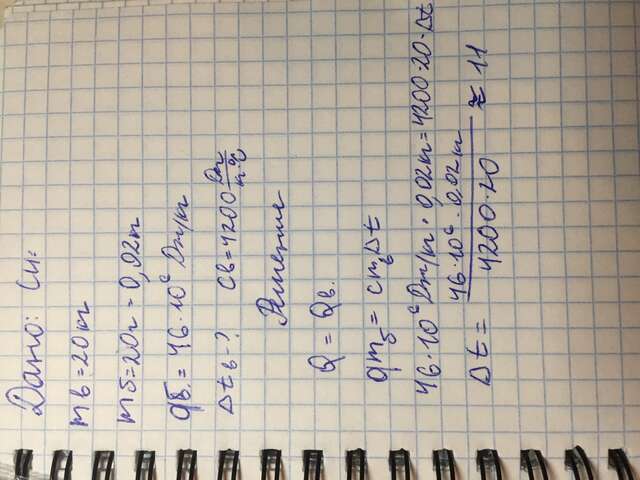 Дано: Си:
mв = 20кг
mб = 20г = 0,02кг
qб. = 46·10⁶ Дж/кг
Δtв - ? Cв = 4200 Дж/кг·°C
Решение
Q = Qв.
qmб = cmвΔt
46·10⁶ Дж/кг · 0,02кг = 4200·20·Δt
Δt = 46·10⁶·0,02кг / 4200·20 ≈ 11